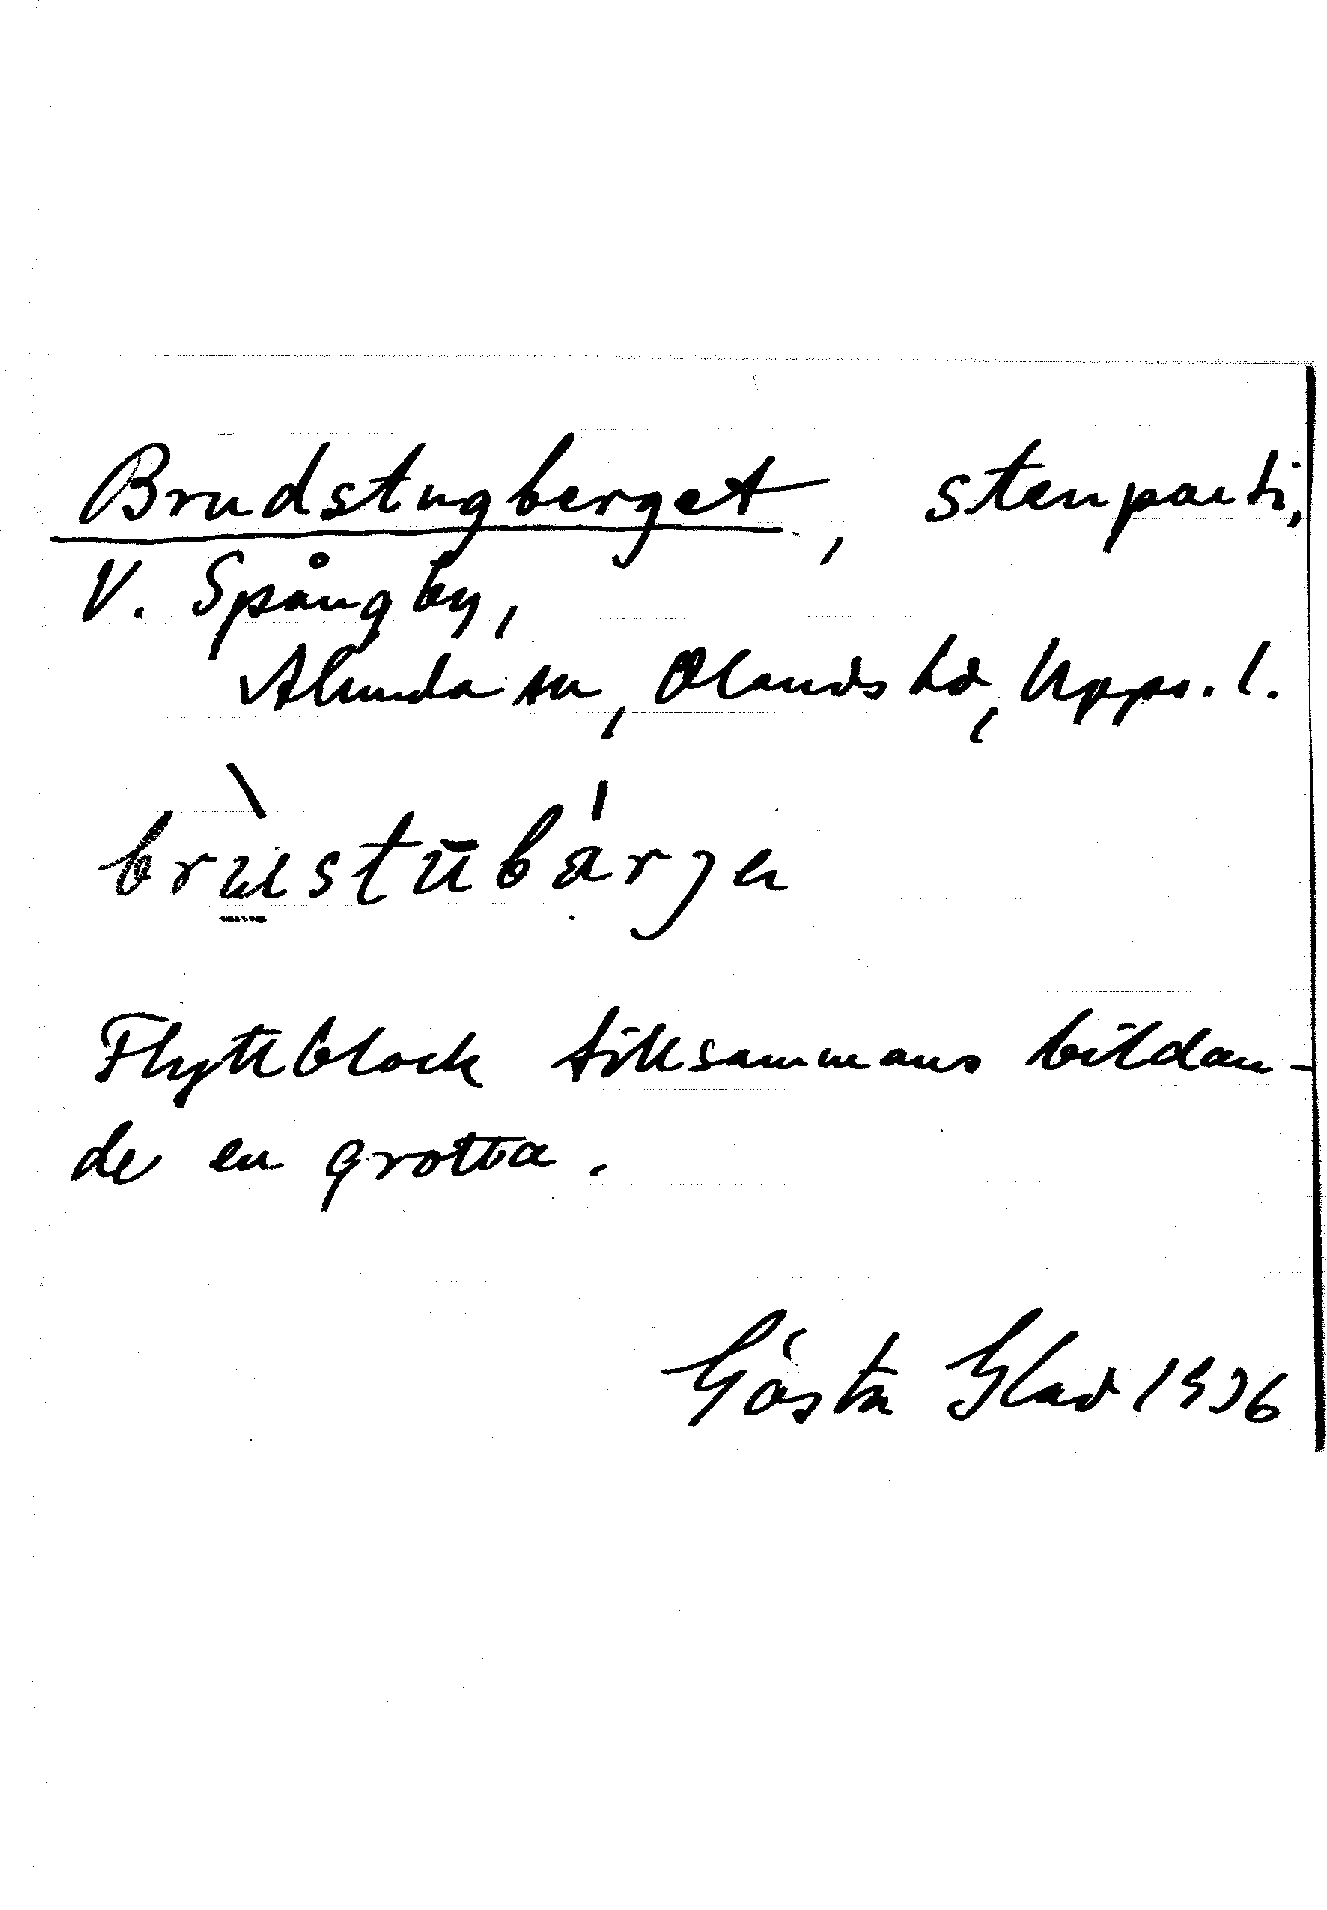 Brudstugberget, stenparti,
V. Spångby,
Alunda sn, Olands hd, Upps. l.
brùstūbárjen
Flyttblock tillsammans bildan-
de en grotta.
Gösta Glad 1936